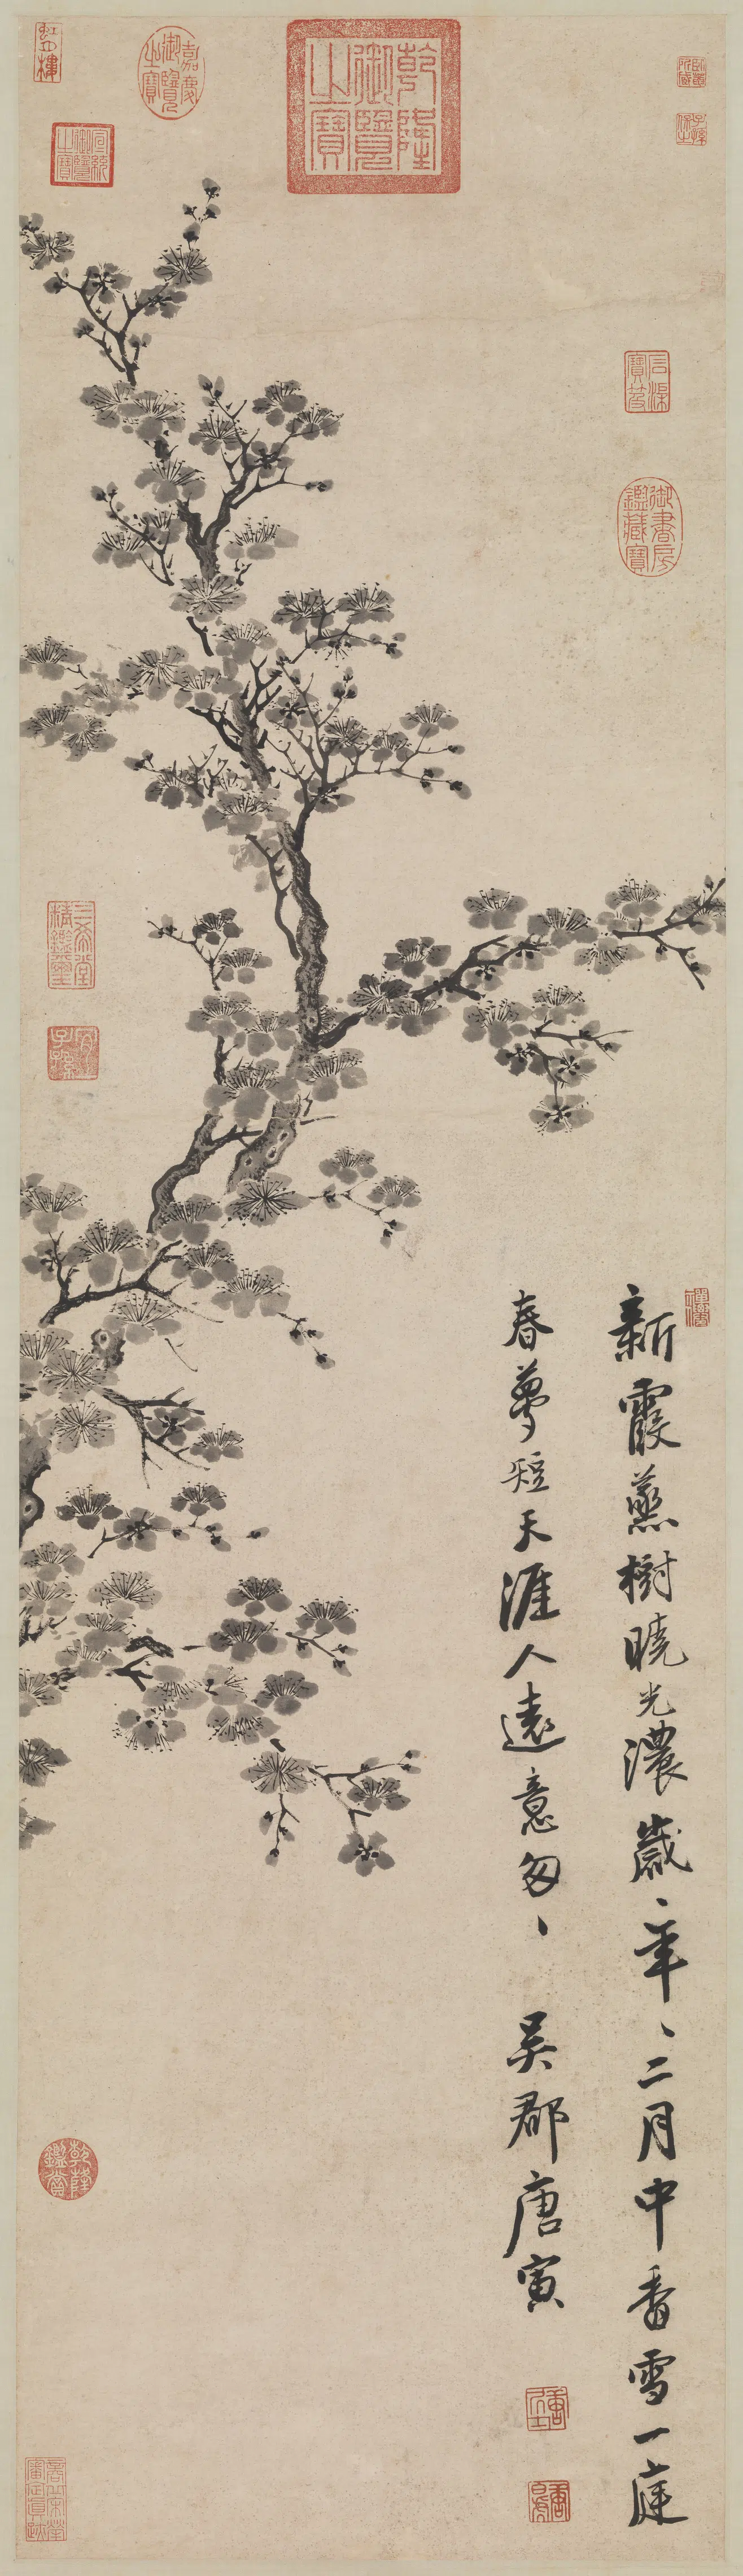 石渠寶笈
御書房鑑藏寶
新霞蒸樹曉光濃歲、年、二月中香雪一庭
春夢短天涯人遠意匆、 吳郡唐寅
唐居士
乾隆御覽之寶
嘉慶御覽之寶
宣統御覽之寶
三希堂精鑑璽
宜子孫
乾隆鑑賞
商丘宋犖審定真跡